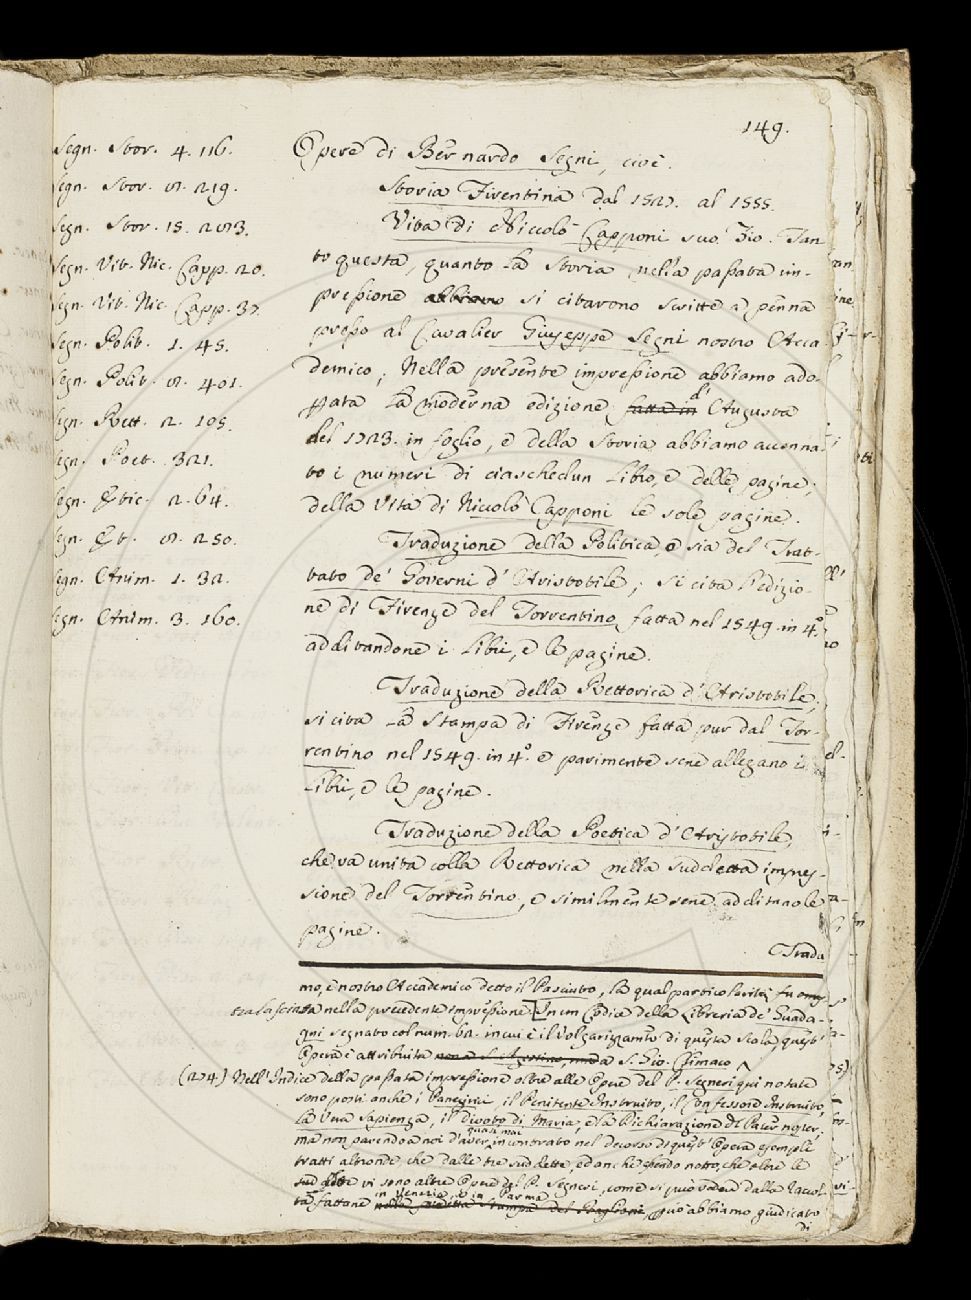 149.
Segn. Stor. 4. 116.
Segn. Stor. 219.
Segn. Stor. 15.
Segn. Vit. Nic. Capp. 20.
Segn. Vit. Nic. Capp. 37.
Segn. Polit. 1. 45.
Segn. Polit. 401.
Segn. Rett. 2. 105.
Segn. Poet. 321.
Segn. Etic. 2. 64.
Segn. Et. 250.
Segn. Anim. 1. 32.
Segn. Anim. 3. 160.
Opere di Bernardo Segni, cioè.
Storia Fiorentina dal 1527. al 1555.
Vita di Niccolò Capponi suo Zio. Tan
to questa, quanto la Storia nella passata im-
pressione abbiamo si citarono scritte a penna
presso al Cavalier Giuseppe Segni nostro Acca
demico; Nella presente impressione abbiamo ado-
ppata la moderna edizione fatta in d' Augusta
del 1723. in foglio, e della Storia abbiamo accenna-
to i numeri di ciaschedun Libro, e delle pagine;
della Vita di Niccolò Capponi le sole pagine.
Traduzione della Politica, o sia del Trat-
tato de' Governi d'Aristotile; si cita l'edizio-
ne di Firenze del Torrentino fatta nel 1549. in 4.°
additandone i Libri, e le pagine.
Traduzione della Rettorica d'Aristotile;
si cita la Stampa di Firenze fatta pur dal Tor-
rentino nel 1549. in 4.° e parimente sene allegano i
Libri, e le pagine.
Traduzione della Poetica d'Aristotile,
che va unita colla Rettorica nella suddetta impres-
sione del Torrentino, e similmente sene additano le
pagine.
Tradu
mo, e nostro Accademico detto il Pasciuto, la qual particolarità fu
tralasciata nella precedente impressione. In un Codice della Libreria de' Guada-
gni segnato col num. è il Volgarizzamto di questa Scala, quest'
Opera è attribuita S. Gio. Climaco
(274) Nell'Indice della passata impressione oltre alle Opere del P. Segneri qui notate
sono posti anche i Panegirici, il Penitente Instruito, il Confessore Instruito,
la Vera Sapienza, il divoto di Maria, e la Dichiarazione del Pater noster;
quasi mai
ma non parendo a noi d'aver incontrato nel decorso di quest'Opera esempli
tratti altronde, che dalle tre suddette, ed anche essendo notto, che oltre le
suddette vi sono altre Opere del P. Segneri, come si può vedere dalla Raccol-
in Venezia, e in Parma
ta fattane nella Stampa del Baglioni, può abbiamo giudicato
di